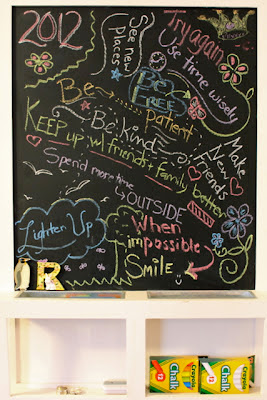 2012
Try again
See new
Places
Use time wisely
Be
FREE
Be
Patient
Be Kind
KEEP up w/ friends + family better
Make
New
Friends
Spend more time
OUTSIDE
Lighten Up
When
impossible
Smile
R
Crayola
Chalk
12
Crayola
Chalk
12